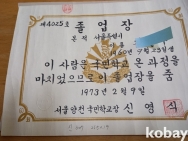 제4025호
졸업장
본적 서울특별시
이 사람은 국민학교 온 과정을
마치었으므로 이 졸업장을 줌
1973년 2월 9일
서울 국민학교장 신영식
kobay